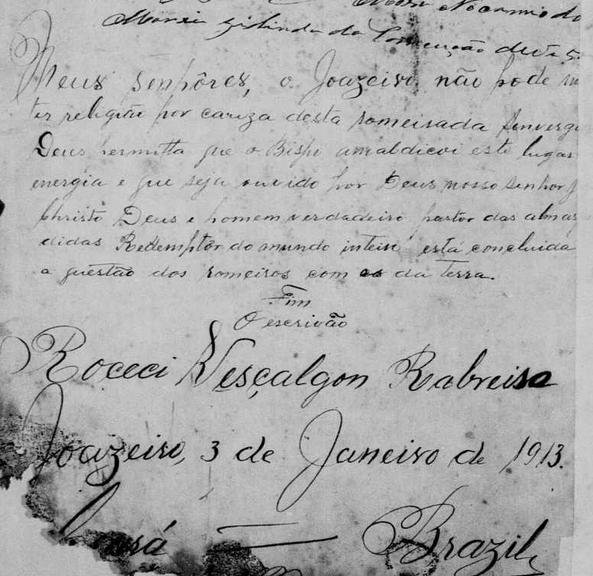 Maria
Meus senhôres, o Joazeiro não pode
ter religião por cauza desta romeirada
Deus permitta que o Bispo este lugar
energia e que seja ouvido por Deus nosso senhor J
Christo Deus e homem verdadeiro pastor das almas
didas Redemptor do mundo inteiro está concluida
a questão dos romeiros com os da terra.
Fim
O escrivão
Roceci Vesçalgon Rabreisa
Joazeiro, 3 de Janeiro de 1913.
Brazil